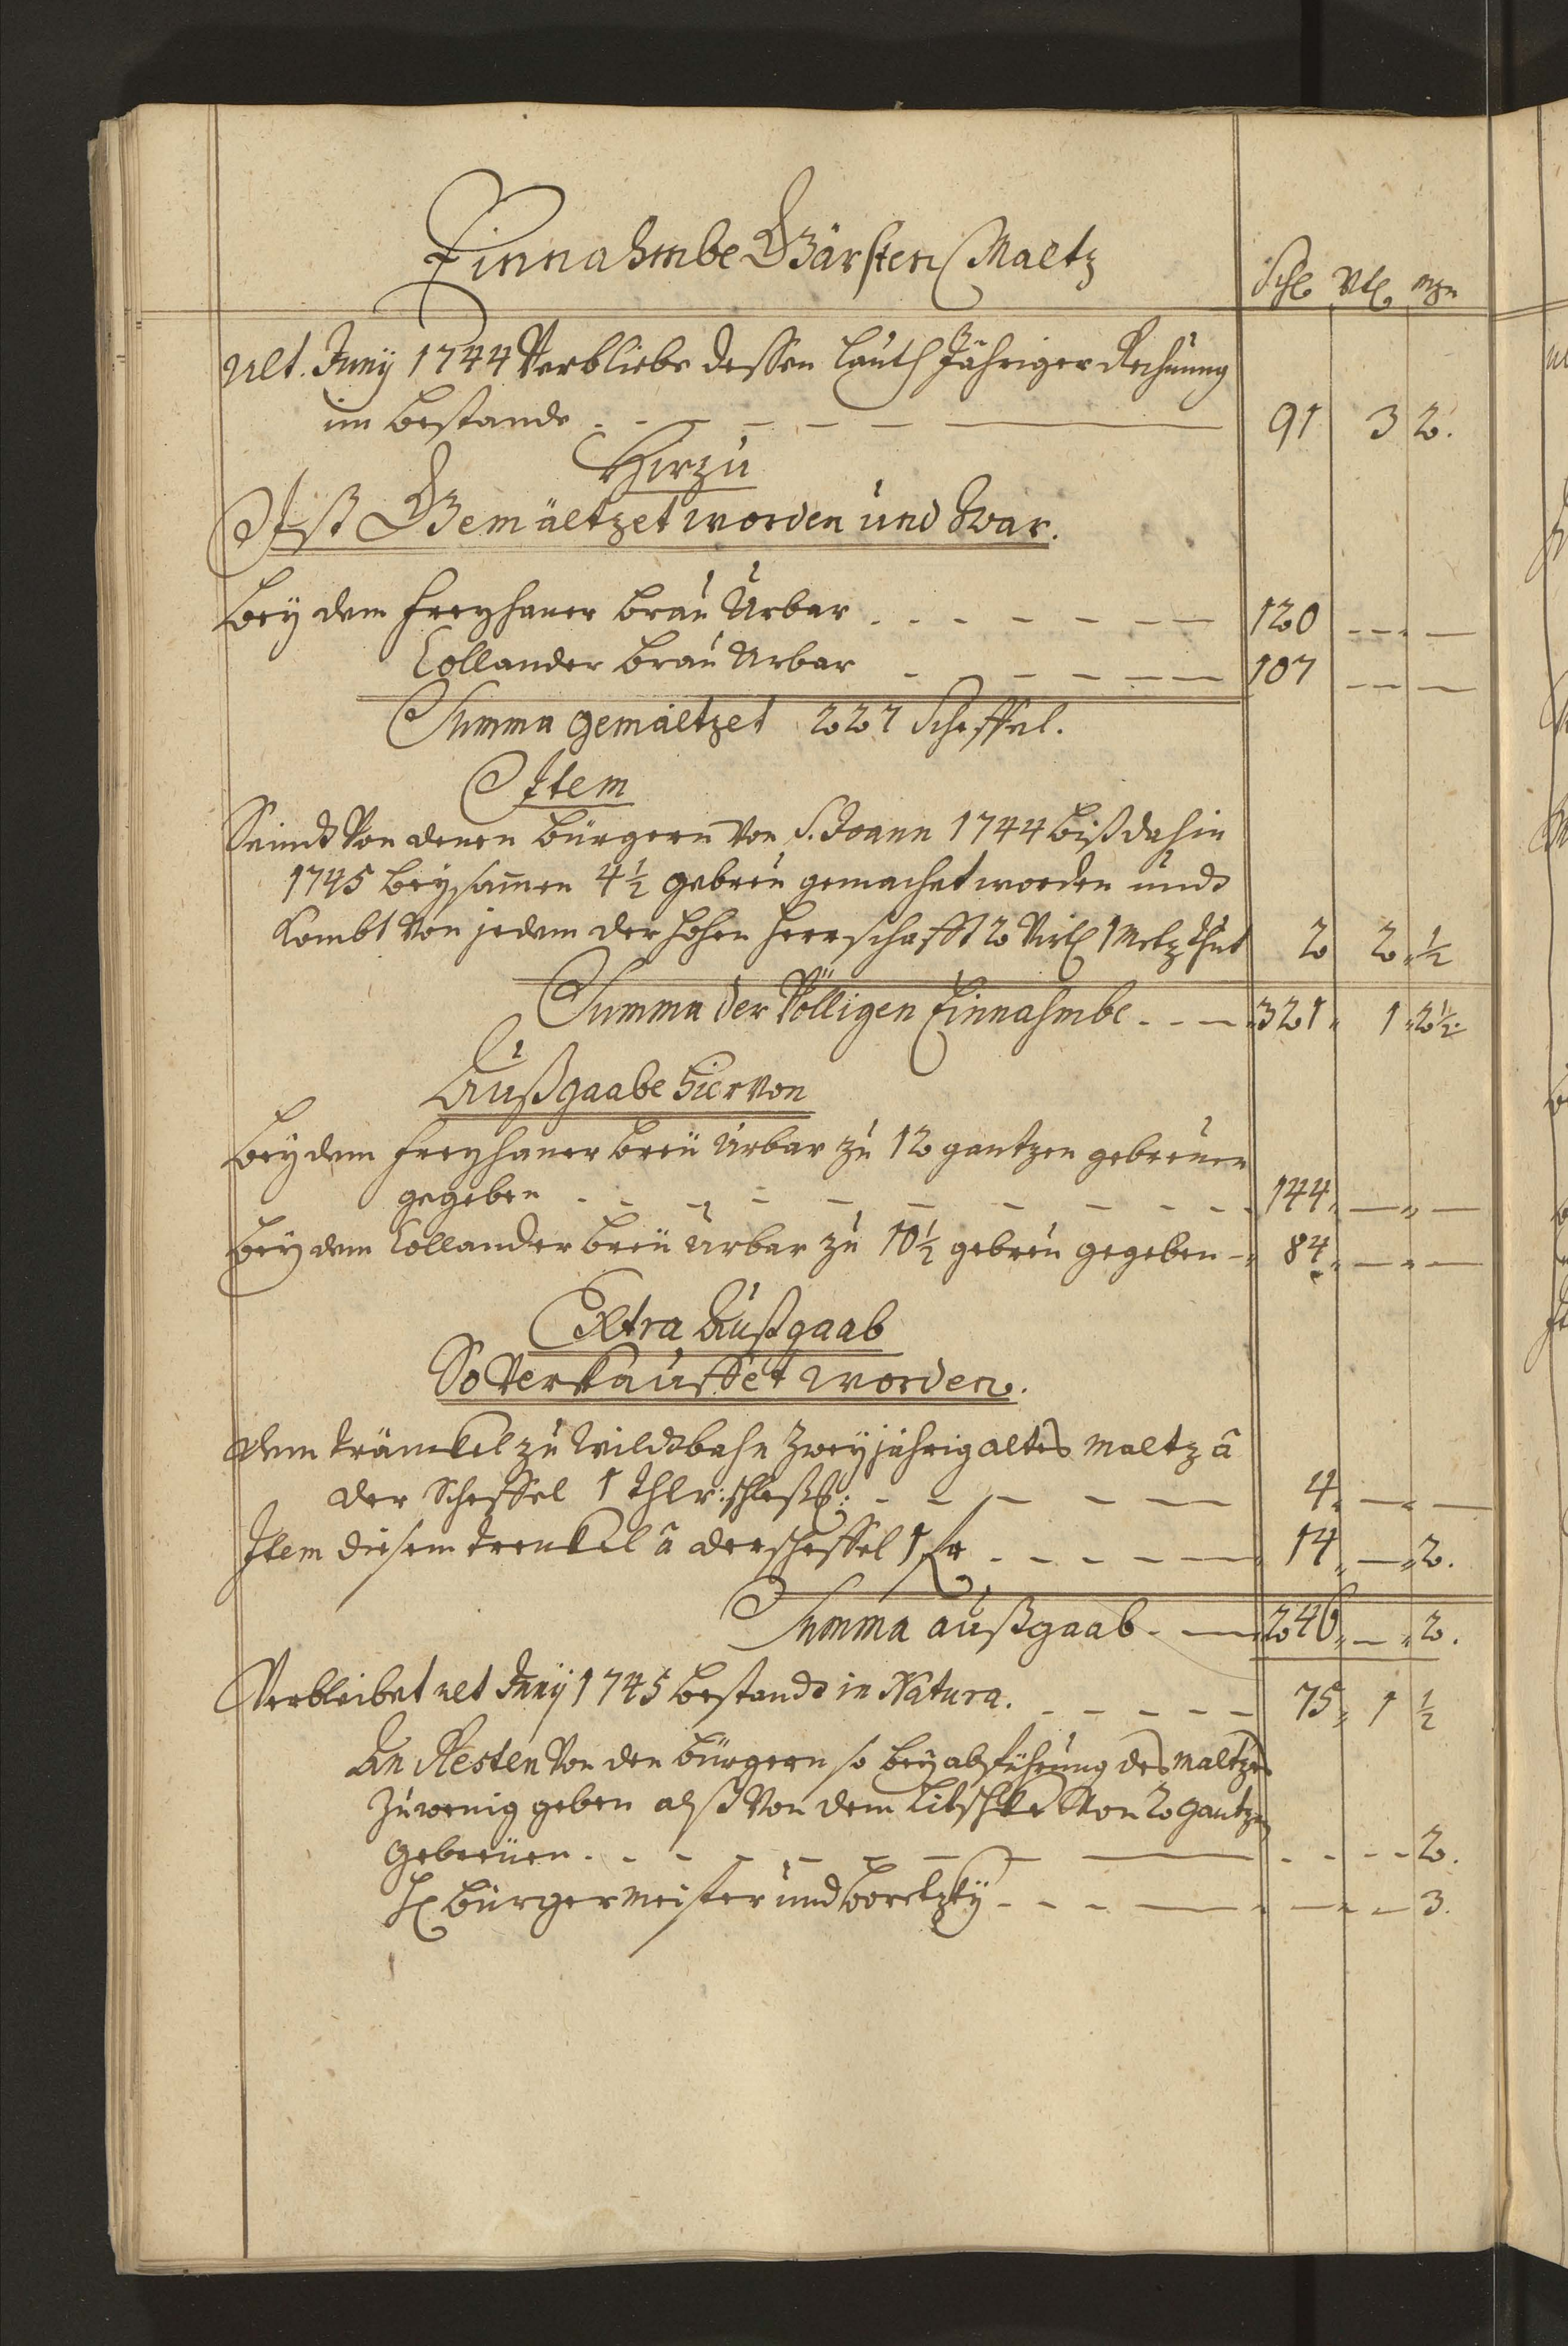 Einnahmbe Gärsten Maltz
Schl Vtl mzn
ult. Junÿ 1744 Verbliebe dessen lauth Jähriger Rechnung
im bestande 91 3 2.
Hirzu
Ist Gemältzet worden und War.
beÿ dem Freyhaner brau Urbar 120
Collander brau Urbar 107
Summa gemältzet 227 Scheffel.
Item
Seindt von denen bürgern von S. Joann 1744 biß dahin
1745 beysam̄en 4½ gebreu gemachet worden undt
kombt von jedem der hohen herrschafft 2 Virtl 1 Metz thut 2 2 ½
Summa der Völligen Einnahmbe 321 1 2½
Außgaabe hiervon
beÿ dem Freyhaner breü Urbar zu 12 gantzen gebreuen
gegeben 144
beÿ dem Collander breü Urbar zu 10½ gebreu gegeben 84
Extra Außgaab
So Verkauffet worden.
dem Kränckel zu Wildtbahn Zweyjährig altes maltz â
der Scheffel 1 Thlr: schleß: 4
Item diesem Krenckel â der scheffel 1 fr 14 2.
Summa außgaab 246 2.
Verbleibet ult Junÿ 1745 bestandt in Natura. 75 1 ½
An Resten von den bürgern so beÿ abführung des maltzes
zu wenig geben alß von dem Litschke von 2 gantzen
gebreüen 2.
H bürgermeister und Boretzkÿ 3.